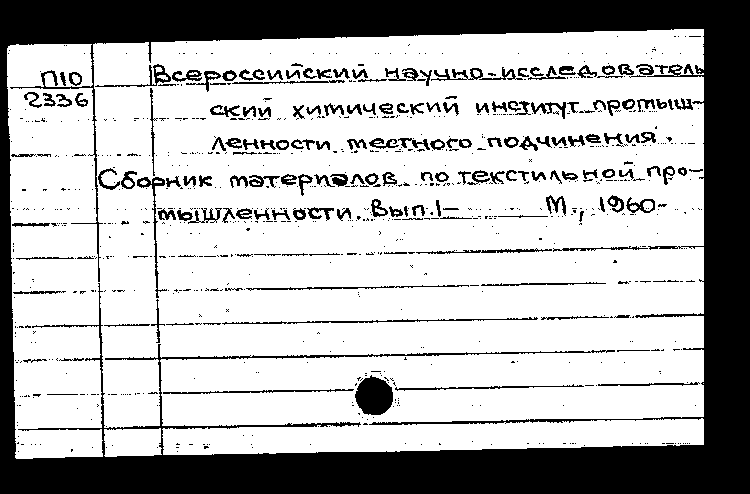 П10
2336
Всероссийский научно-исследователь
ский химический институт промыш-
ленности местного подчинения.
Сборник материалов по текстильной про-
мышленности. Вып.1- М., 1960-